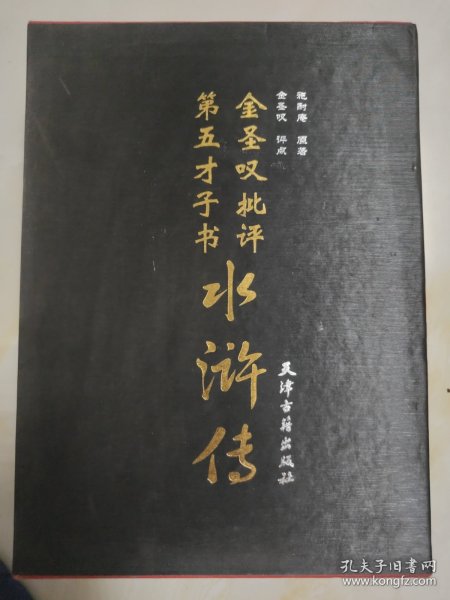 施耐庵 原著
金圣叹 评点
金圣叹批评
第五才子书
水浒传
天津古籍出版社
孔夫子旧书网
www.kongfz.com